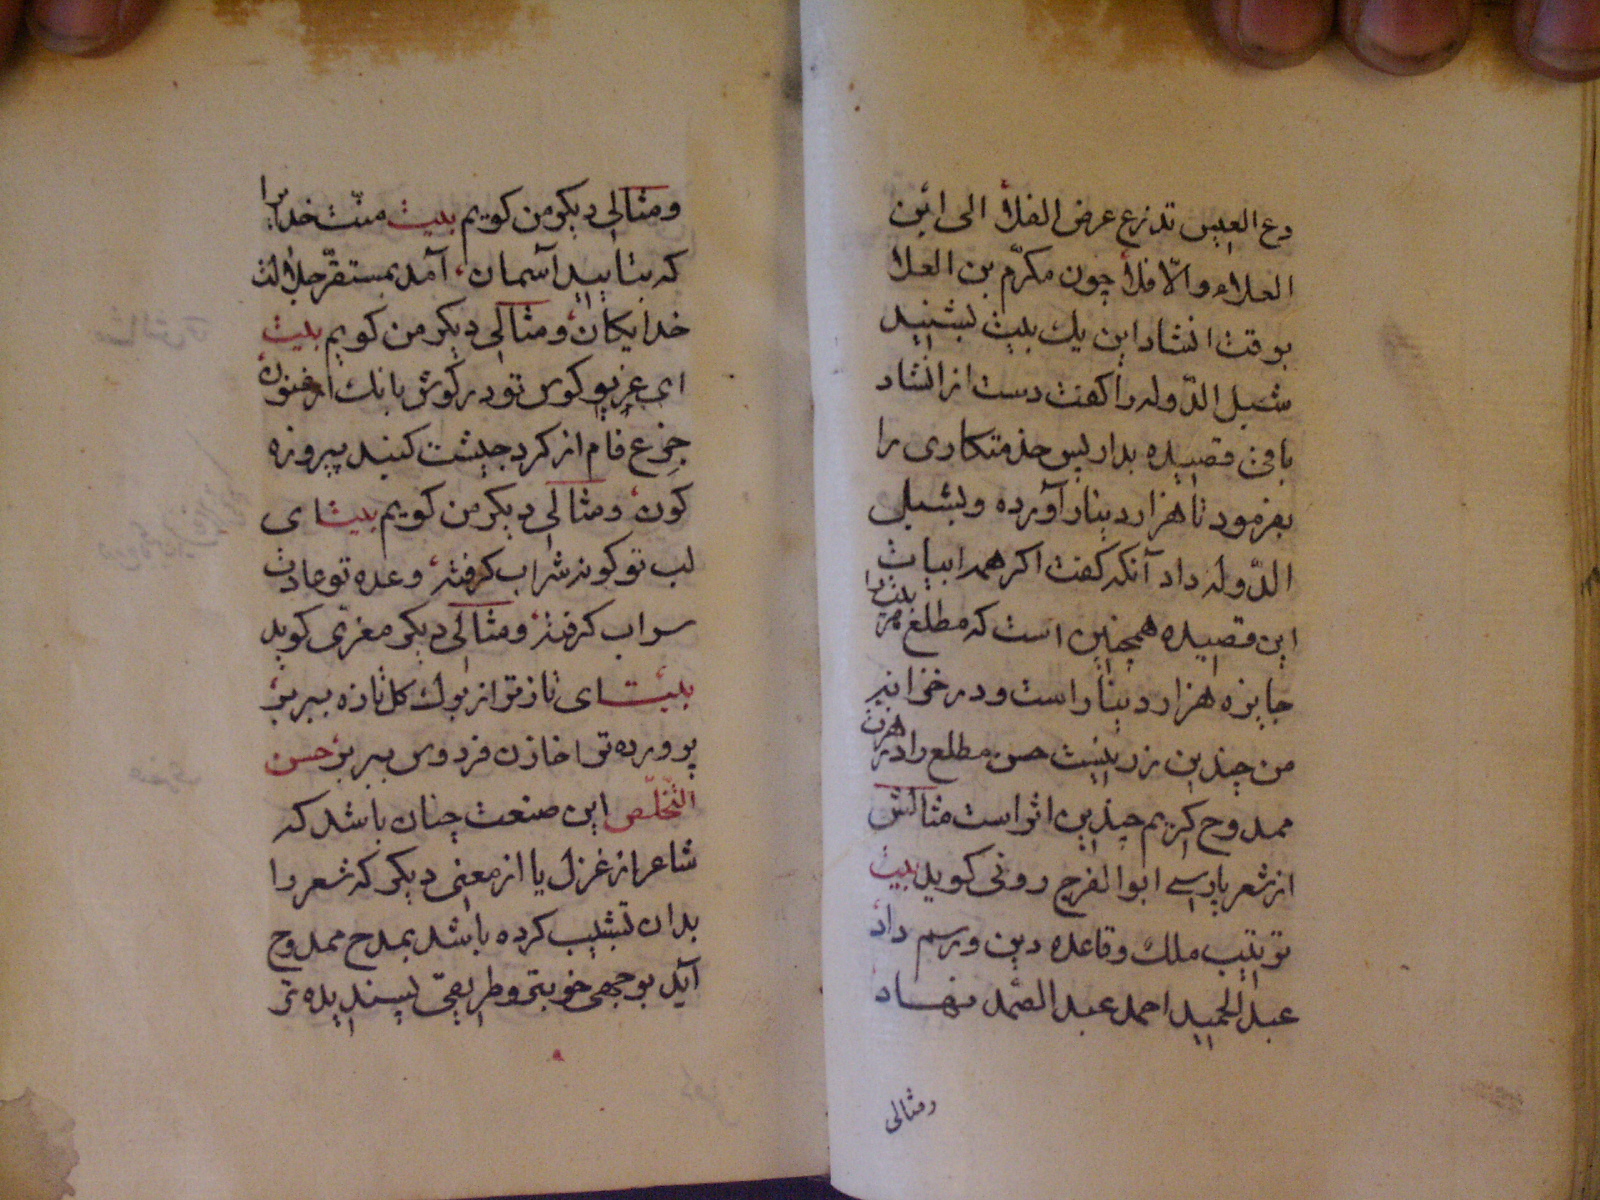 دع العیس تذرع عرض الفلا الی ابن
العلاء والّا فلا چون مکرّم بن العلا
بوقت انشاد این یك بیت بشنید
شبل الدّوله را کفت دست از انشاد
باقی قصیده بدار پس خدمتکاری را
بفرمود تا هزار دینار آورده و بشبل
الدّوله داد آنکه کفت اکر همه ابیات
این قصیده همچنین است که مطلع هر بیت را
جایزه هزار دینار است و در خزانه
من چندین زر نیست حسن مطلع را در
ممدوح کریم چندین اثر است مثالش
از شعر پارسی ابوالفرج رونی کوید بیت
ترتیب ملك و قاعده دین و رسم داد
عبدالحمید احمد عبدالصّمد نهاد
ومثالی
ومثالی دیکر من کویم بیت منّت خدایرا
که بتایید آسمان آمد بمستقرّ جلالت
خدایکان ومثالی دیکر من کویم بیت
ای غریو کوس تو در کوش بانك ارغنون
جزع فام از کرد جیشت کنبد پیروزه
کون ومثالی دیکر من کویم بیت ای
لب تو کونه شراب کرفته وعده تو عادت
سراب کرفته ومثالی دیکر معزّی کوید
بیت ای تازه‌تر از برك کل تازه ببر بر
پرورده ترا خازن فردوس ببر بر حسن
التّخلّص این صنعت چنان باشد که
شاعر از غزل یا از معنی دیکر که شعر را
بدان تشبیب کرده باشد بمدح ممدوح
آید بوجهی خوبتر و طریقی پسندیده‌تر